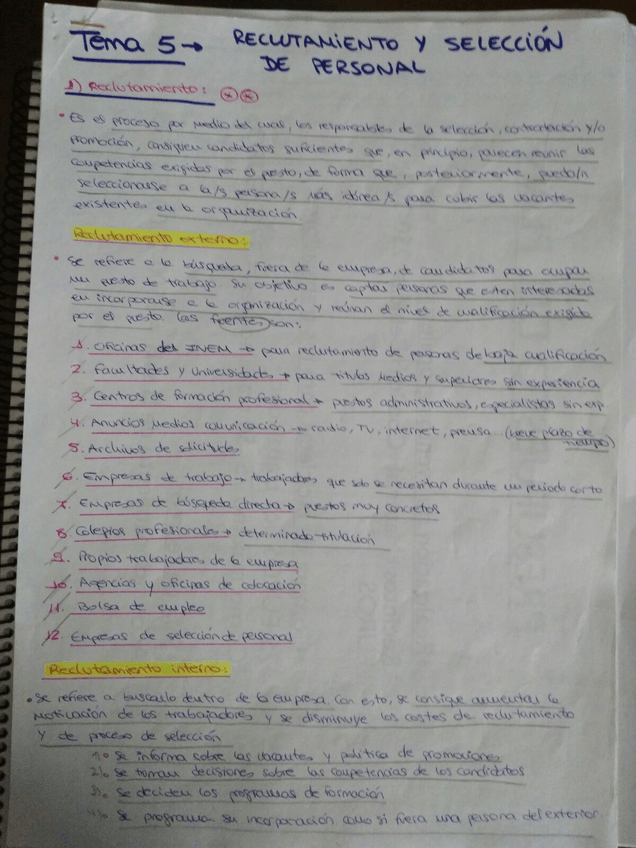 Tema 5 → RECLUTAMIENTO Y SELECCIÓN
DE PERSONAL
1) Reclutamiento:
• Es el proceso por medio del cual, los responsables de la selección, contratación y/o
promoción, consiguen candidatos suficientes que, en principio, parecen reunir las
competencias exigidas por el puesto, de forma que, posteriormente, pueda/n
seleccionarse a la/s persona/s más idónea/s para cubrir las vacantes
existentes en la organización
Reclutamiento externo:
• Se refiere a la búsqueda, fuera de la empresa, de candidatos para ocupar
un puesto de trabajo. Su objetivo es captar personas que esten interesadas
en incorporarse a la organización y reúnan el nivel de cualificación exigido
por el puesto. Las fuentes son:
1. Oficinas del INEM → para reclutamiento de personas de baja cualificación
2. Facultades y Universidades → para titulos medios y superiores sin experiencia
3. Centros de formación profesional → puestos administrativos, especialistas sin exp
4. Anuncios medios comunicación → radio, TV, internet, prensa (breve plazo de
tiempo)
5. Archivos de solicitudes
6. Empresas de trabajo → trabajadores que solo se necesitan durante un periodo corto
7. Empresas de búsqueda directa → puestos muy concretos
8. Colegios profesionales → determinada titulación
9. Propios trabajadores de la empresa
10. Agencias y oficinas de colocación
11. Bolsa de empleo
12. Empresas de selección de personal
Reclutamiento interno:
• Se refiere a buscarlo dentro de la empresa. Con esto, se consigue aumentar la
motivación de los trabajadores y se disminuye los costes de reclutamiento
y de proceso de selección
1) Se informa sobre las vacantes y política de promociones
2) Se toman decisiones sobre las competencias de los candidatos
3) Se deciden los programas de formación
4) Se programa su incorporación como si fuera una persona del exterior